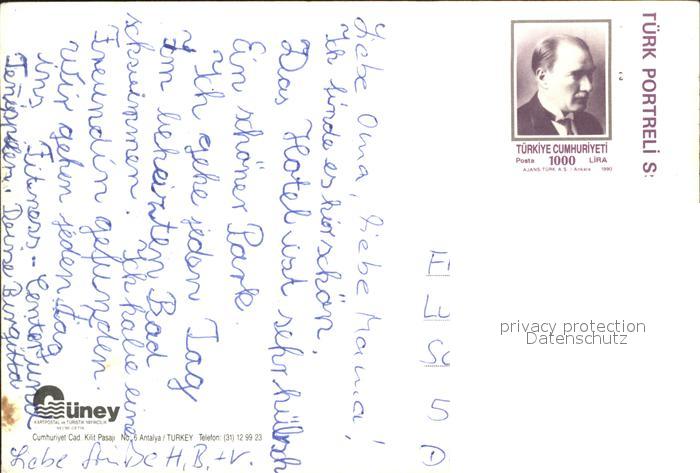 Liebe Oma, liebe Mama!
Ich finde es hier schön,
Das Hotel ist sehr hübsch
Ein schöner Park.
Ich gehe jeden Tag
Im beheizten Bad
schwimmen. Ich habe eine
Freundin gefunden.
Wir gehen jeden Tag
ins Fitness-Center und
Deine Birgitta
Liebe H, B. + V.
TÜRKİYE CUMHURİYETİ
Posta 1000 LİRA
AJANS-TÜRK A.Ş. / Ankara 1990
TÜRK PORTRELİ S
privacy protection
Datenschutz
Lu
5
D
Güney
KARTPOSTAL ve TURİSTİK YAYINCILIK
Cumhuriyet Cad. Kilit Pasajı No: 6 Antalya / TURKEY Telefon: (31) 12 99 23